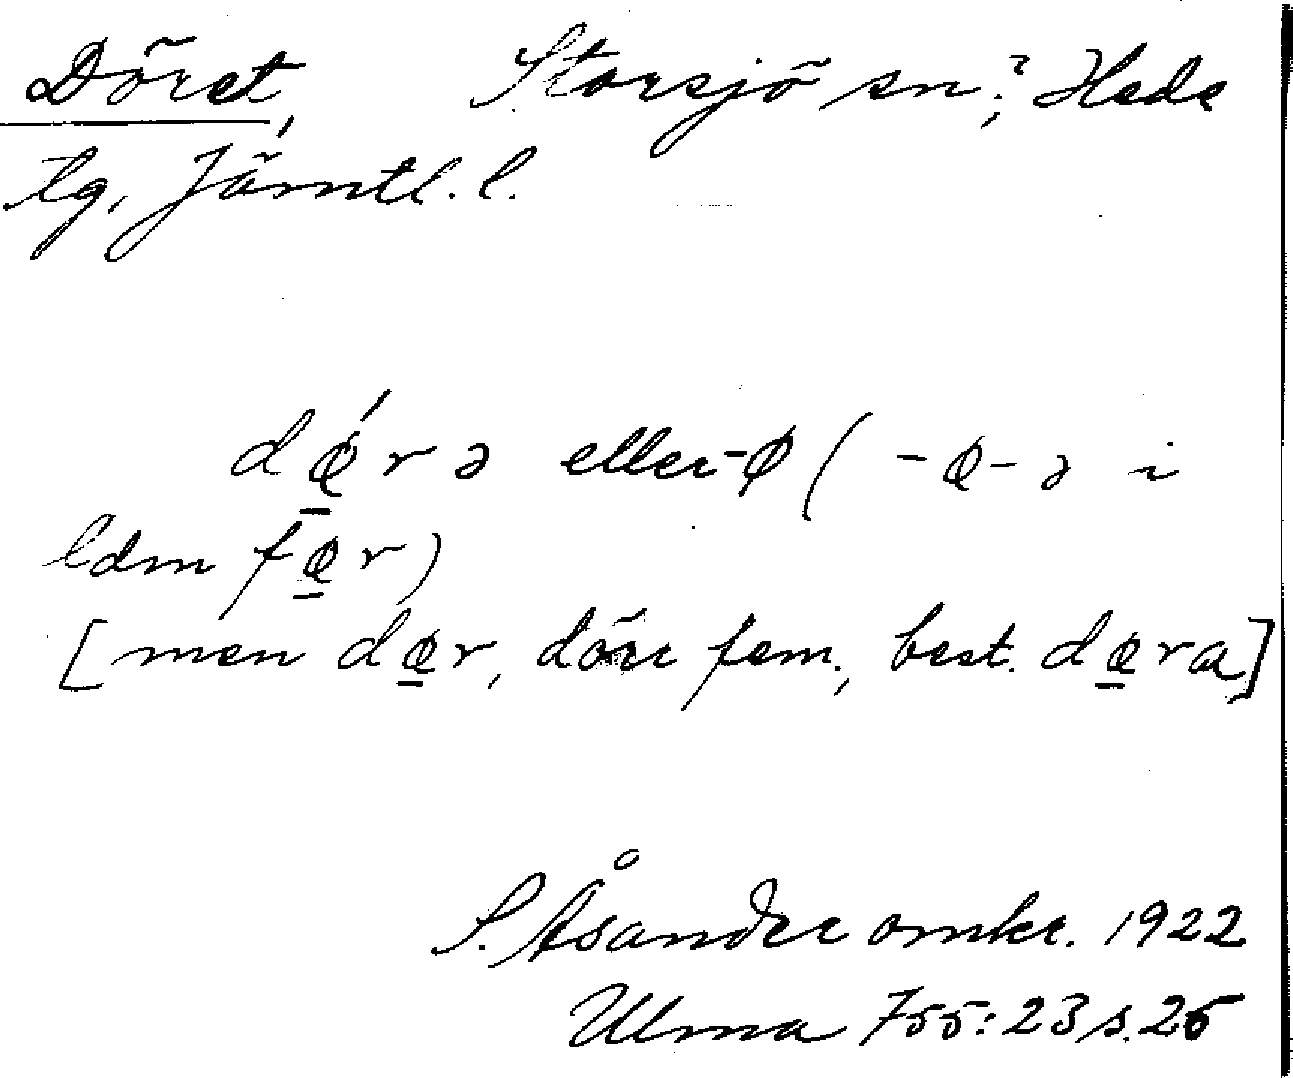 Döret, Storsjö sn;? Hede
tg, Jämtl. l.
dǿ̱rə eller -ø (-ø-ə i
ldm fø̱r)
[men dø̱r, dörr fem., best. dø̱ra]
S. Åsander omkr. 1922
Ulma 755:23 s. 25